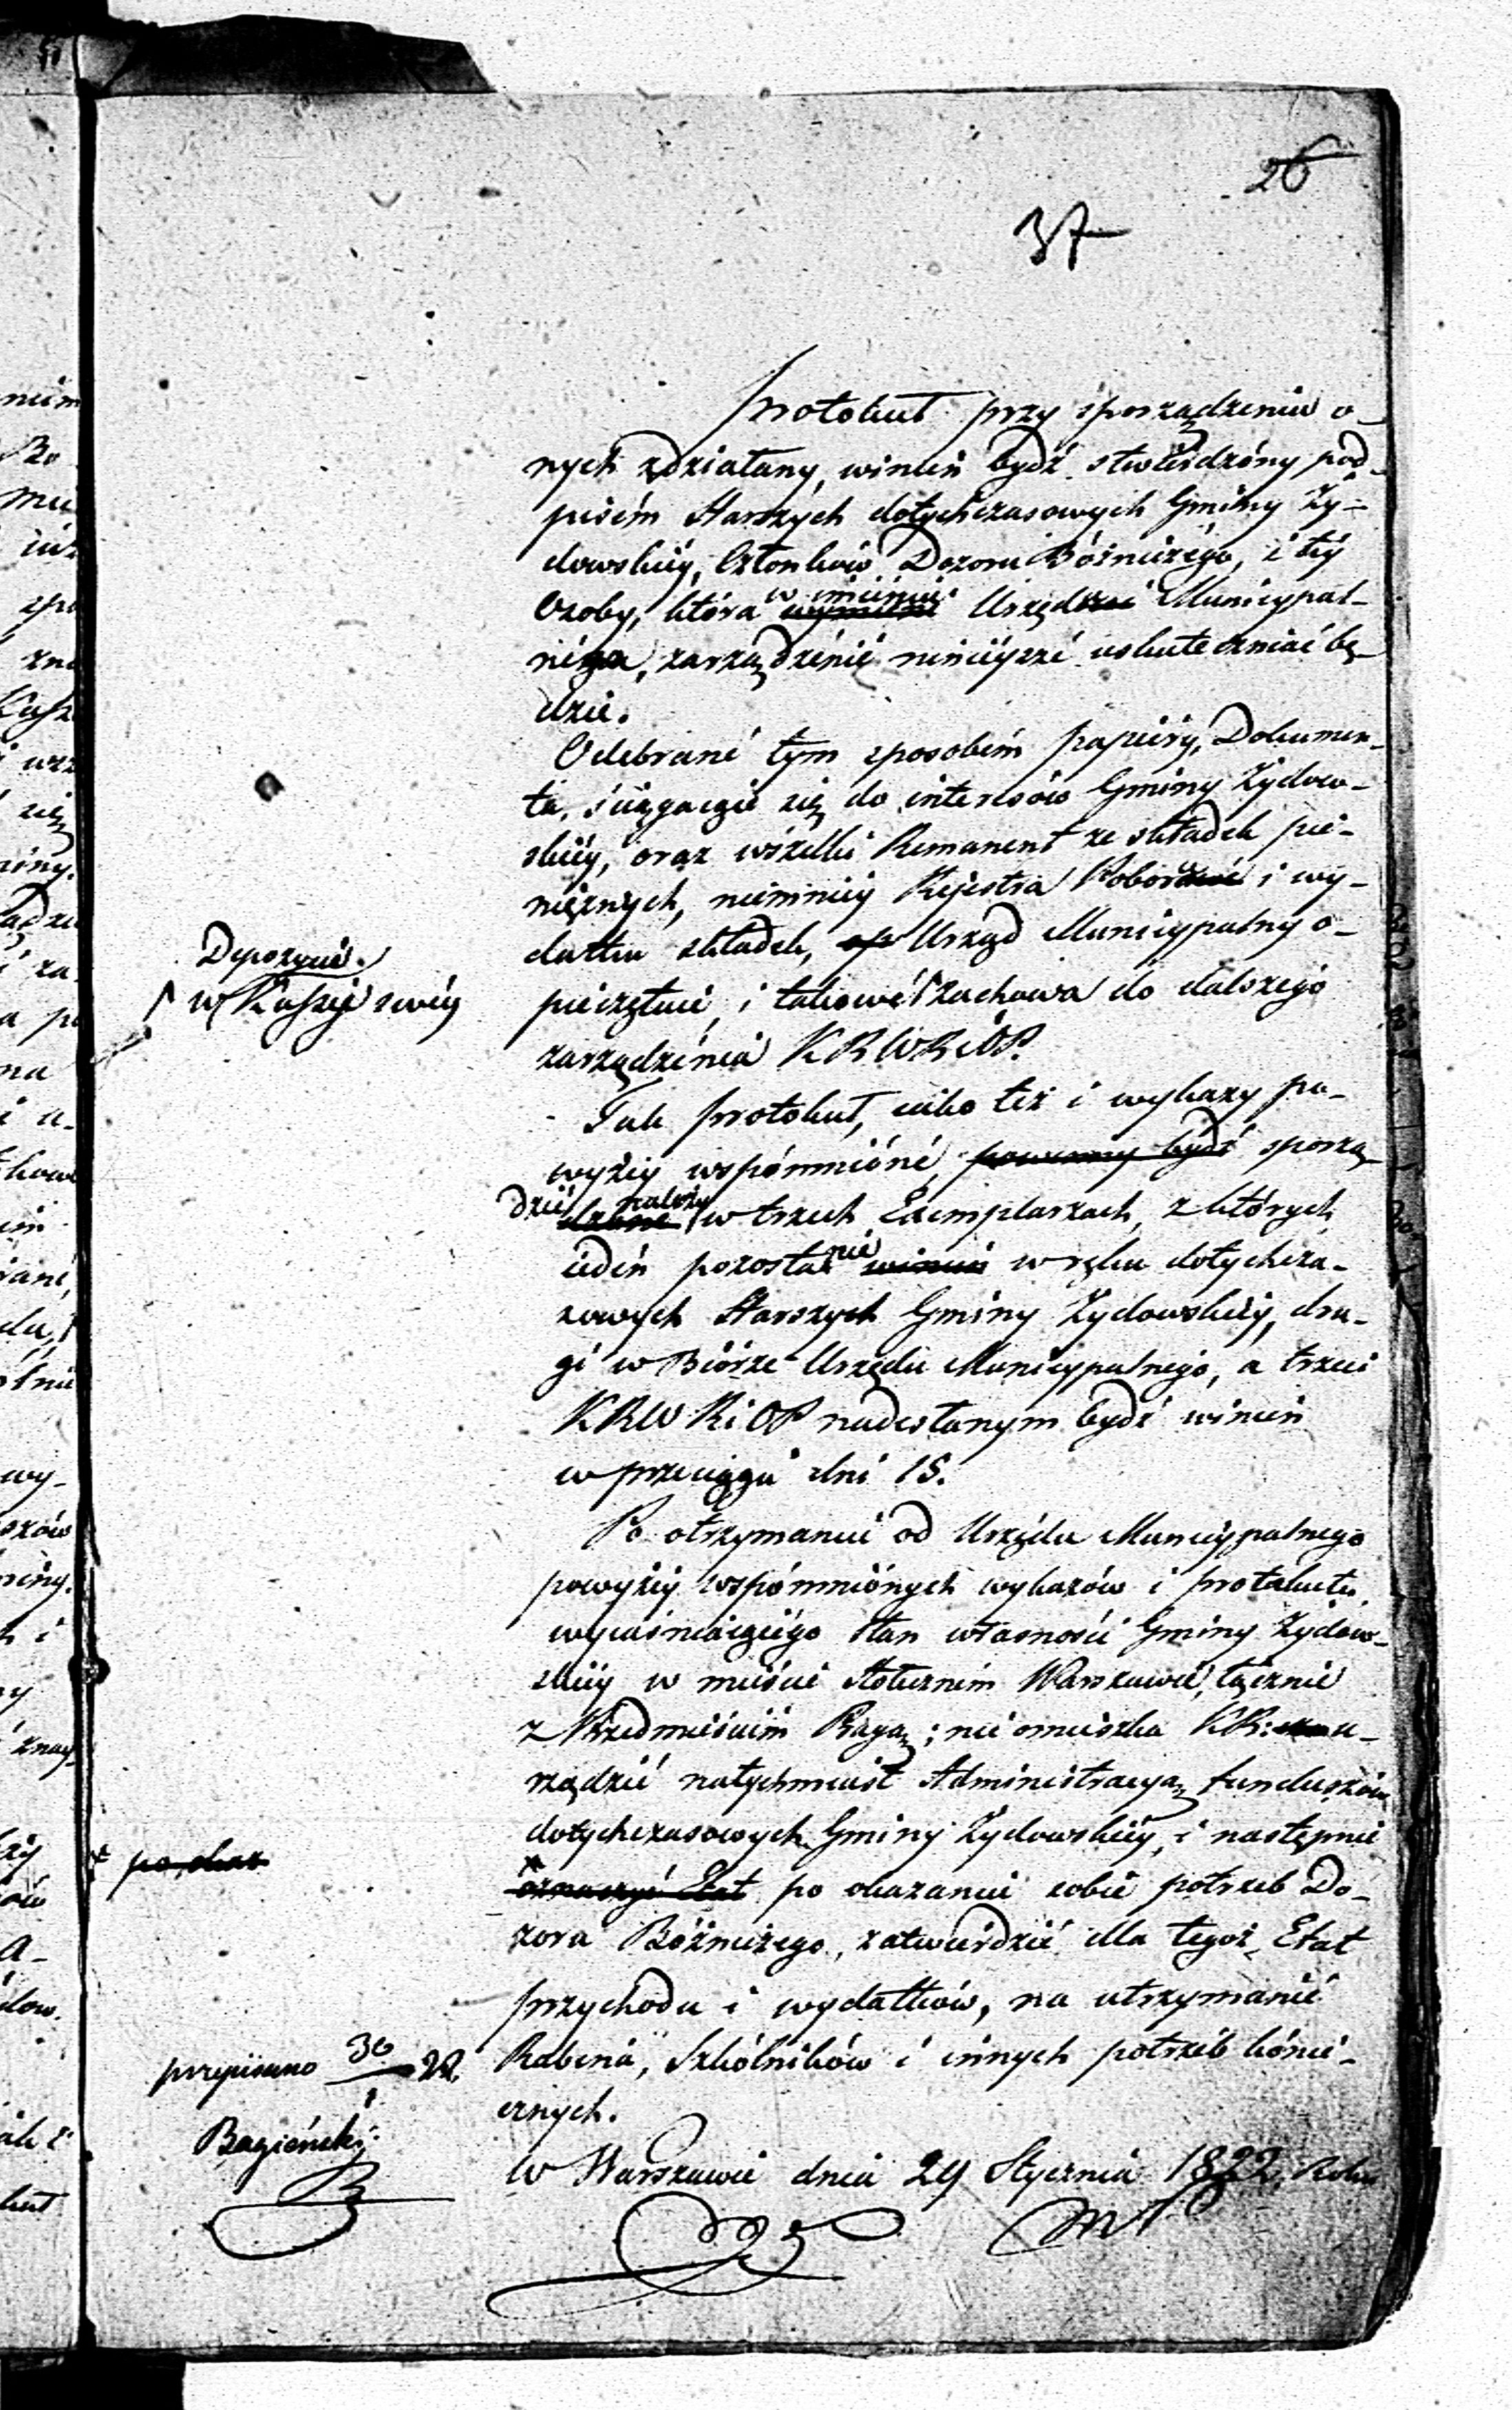 26
37
Protokuł przy sporządzeniu o-
nych zdziałany, winien bydź stwierdzony pod-
pisem Starszych dotychczasowych Gminy Ży-
dowskiéy, Członków Dozoru Bóżniczégo, i téy
Osoby, która w imieniu Urzędu Municypal-
nego, zarządzénié ninieyszé uskuteczniać bę-
dzie.
Odebrané tym sposobém papiery, Dokumen-
ta, ściągaiące się do interesów Gminy Żydow-
skiéy, oraz wszelki Remanent ze składek pie-
niężnych, niemniéy Rejestra Poboru i wy-
datku składek, Urząd Municypalny o-
pieczętuie, i takowé zachowa do dalszego
Depozycie
w Kassie swéy
zarządzénia KRWRiOP.
Tak protokuł, iako też i wykazy po-
wyżéy wspómnióné, powinny bydź sporzą-
dzić należy w trzech Exemplarzach, z których
ieden pozostanie w ręku dotychcza-
sowych Starszych Gminy Żydowskiéy, dru-
gi w Biórze Urzędu Municypalnego, a trzeci
KRWRiOP nadesłanym bydź winien
w przeciągu dni 15.
Po otrzymaniu od Urzędu Municypalnego
powyżéy wspómniónych wykazów i protokułu
wyiaśniaiącégo stan własności Gminy Żydow-
skiéy w mieście Stołecznem Warszawie, łącznie
z Przedmieściém Pragą; nie omieszka KR: u-
rządzić natychmiast Administracyą funduszów
dotychczasowych Gminy Żydowskiéy, i następnie
po okaz
oznaczyć Etat po okazaniu sobie potrzeb Do-
zoru Bóżniczego, zatwierdzić dla tegoż Etat
przychodu i wydatków, na utrzymanie
Rabina, Szkólników i innych potrzéb konie-
cznych.
przepisano 30/1 22.
Bagieński
W Warszawie dnia 29 Stycznia 1822 Roku